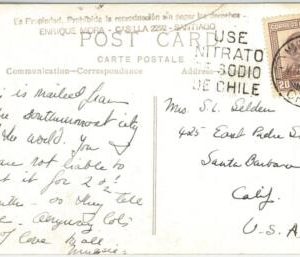 Es Propiedad. Prohibida la reproducción sin pagar los derechos
ENRIQUE MORA - CASILLA 2292 - SANTIAGO
POST CARD
CARTE POSTALE
Communication—Correspondance
USE
NITRATO
DE SODIO
DE CHILE
20
is mailed from
the southernmost city
the world. You
are not liable to
get it for 2 or
so they tell
me. Anyway lots
of love to all
Mrs. S. L. Selden
425 East Padre St
Santa Barbara
Calif.
U.S.A